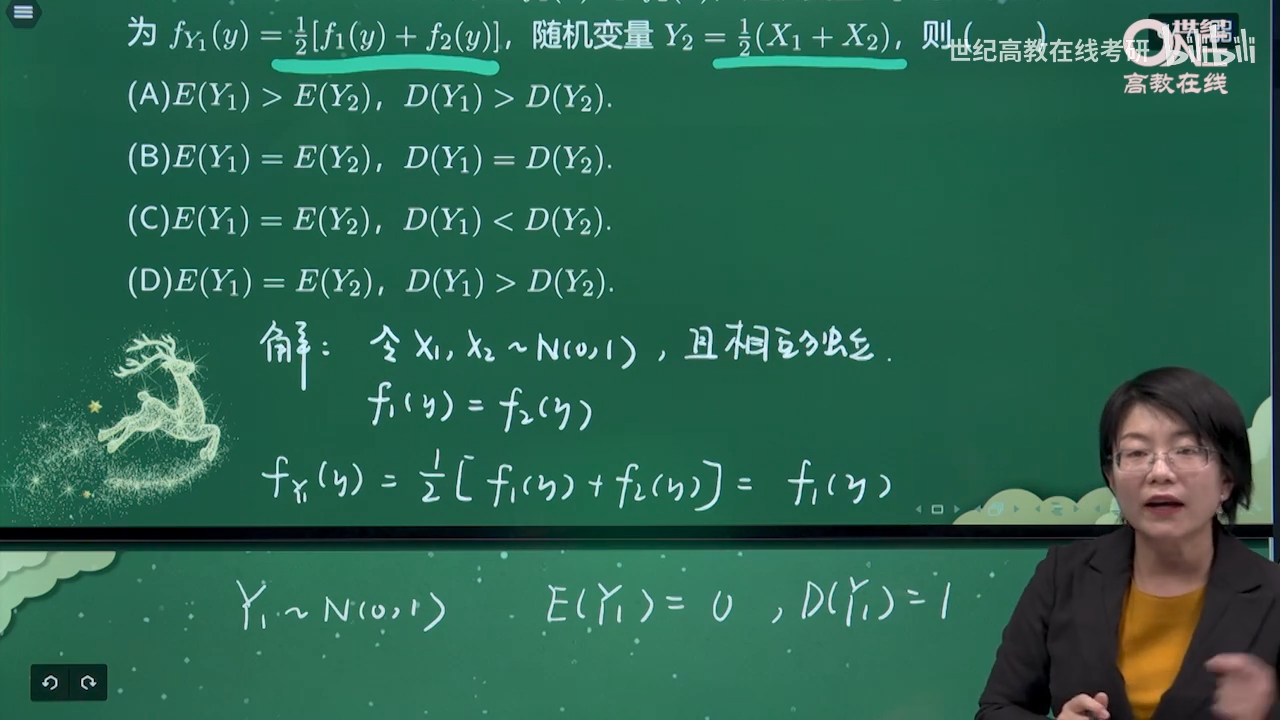 为 f_{Y_1}(y) = \frac{1}{2}[f_1(y) + f_2(y)]，随机变量 Y_2 = \frac{1}{2}(X_1 + X_2)，则 ( )
世纪高教在线考研
bilibili
世纪
高教在线
(A)E(Y_1) > E(Y_2)，D(Y_1) > D(Y_2).
(B)E(Y_1) = E(Y_2)，D(Y_1) = D(Y_2).
(C)E(Y_1) = E(Y_2)，D(Y_1) < D(Y_2).
(D)E(Y_1) = E(Y_2)，D(Y_1) > D(Y_2).
解：令 X_1, X_2 ~ N(0,1)，且相互独立.
f_1(y) = f_2(y)
f_{Y_1}(y) = \frac{1}{2}[f_1(y) + f_2(y)] = f_1(y)
Y_1 ~ N(0,1) E(Y_1) = 0 , D(Y_1) = 1